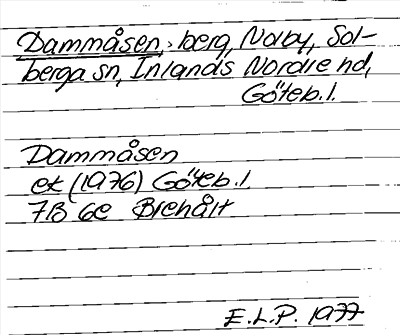 Dammåsen, berg, Nolby, Sol-
berga sn, Inlands Nordre hd,
Göteb. l.
Dammåsen
ek (1976) Göteb. l.
7B 6e Brehålt
E.L.P. 1977